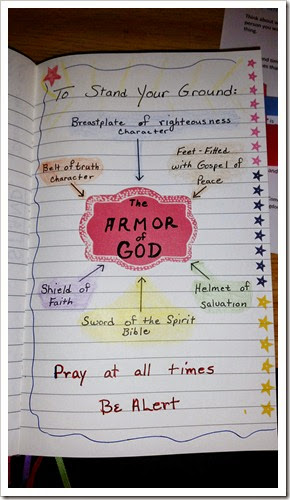 To Stand Your Ground:
Breastplate of righteousness
character
Belt of truth
character
Feet-Fitted
with Gospel of
Peace
The
ARMOR
of
GOD
Shield of
Faith
Helmet of
salvation
Sword of the Spirit
Bible
Pray at all times
Be Alert